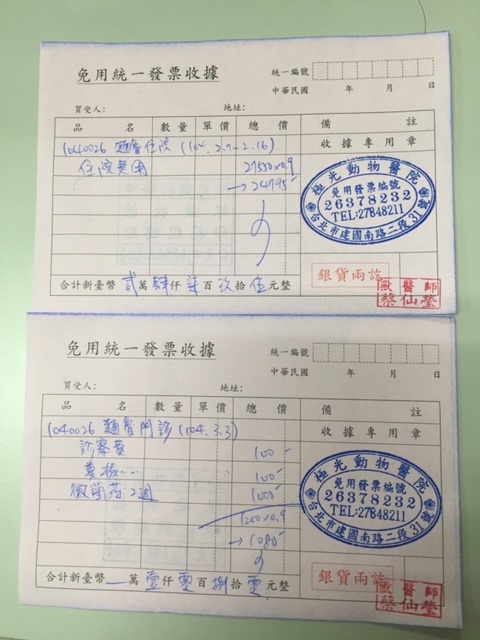 免用統一發票收據
統一編號
中華民國 年 月 日
買受人: 地址:
品 名 數量 單價 總 價 備 註
1040026 麵麵住院 (104.2.7-2.16) 收據專用章
住院費用 27550×0.9
→24795
極光動物醫院
免用發票編號
26378232
TEL:27848211
台北市建國南路二段31號
合計新臺幣 貳萬肆仟柒百玖拾伍元整
銀貨兩訖
獸醫師
蔡仙瑩
免用統一發票收據
統一編號
中華民國 年 月 日
買受人: 地址:
品 名 數量 單價 總 價 備 註
1040026 門診 (104.3.3) 收據專用章
診察費 100
100
2週 100
1200×0.9
→1080
極光動物醫院
免用發票編號
26378232
TEL:27848211
台北市建國南路二段31號
合計新臺幣 萬壹仟零百捌拾零元整
銀貨兩訖
獸醫師
蔡仙瑩